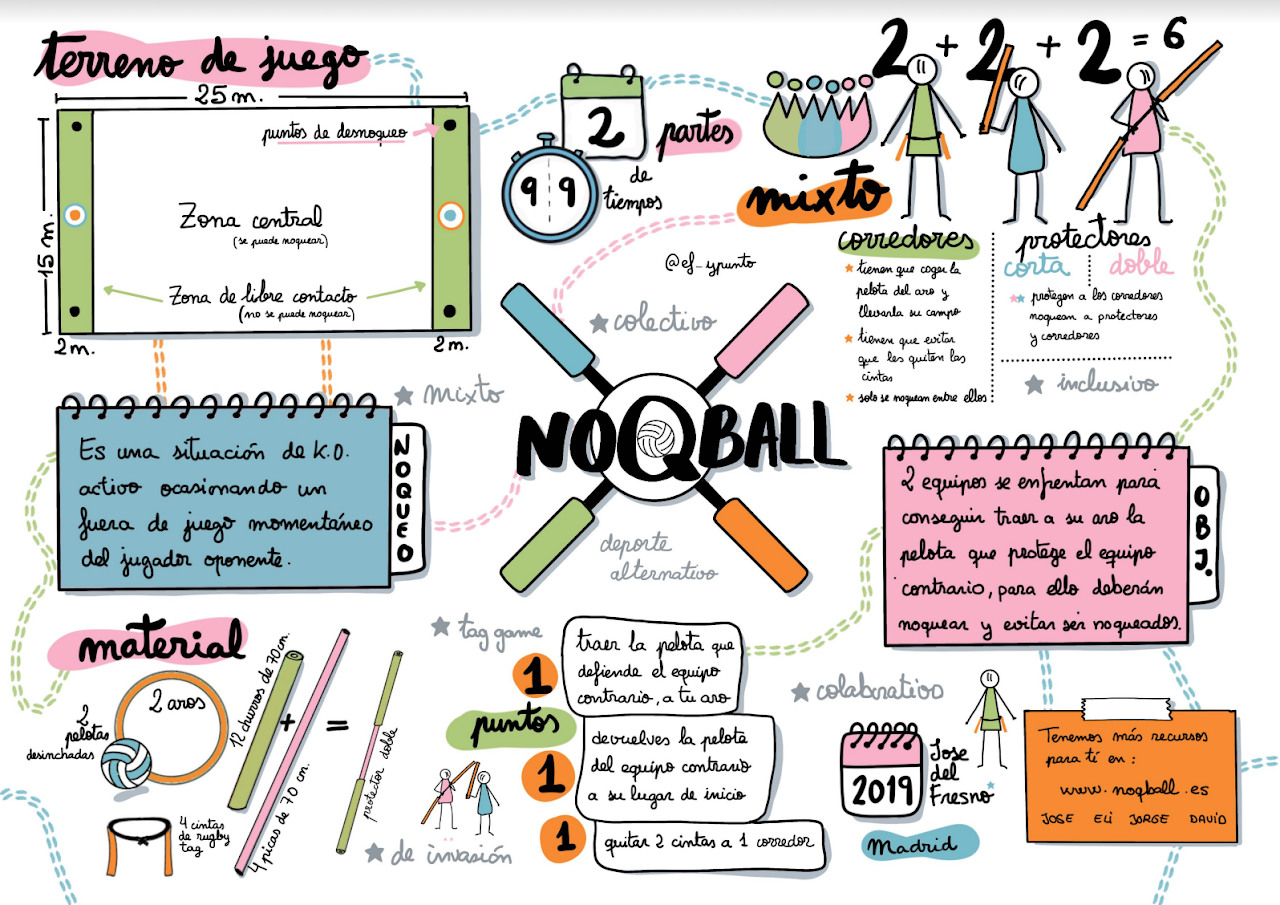 terreno de juego
25 m.
15 m.
puntos de desnoqueo
Zona central
(se puede noquear)
Zona de libre contacto
(no se puede noquear)
2 m.
2 m.
2
partes
9 9
de
tiempos
mixto
2 + 2 + 2 = 6
corredores
tienen que coger la
pelota del aro y
llevarla su campo
tienen que evitar
que les quiten las
cintas
solo se noquean entre ellos
protectores
corta
doble
protegen a los corredores
noquean a protectores
y corredores
@ef_ypunto
colectivo
mixto
inclusivo
NOQBALL
deporte
alternativo
Es una situación de K.O.
activo ocasionando un
fuera de juego momentáneo
del jugador oponente.
NOQUEO
2 equipos se enfrentan para
conseguir traer a su aro la
pelota que protege el equipo
contrario, para ello deberán
noquear y evitar ser noqueados.
OBJ.
material
2 aros
2
pelotas
desinchadas
4 cintas
de rugby
tag
12 churros de 70 cm.
+
4 picas de 70 cm.
=
protector doble
tag game
puntos
1
traer la pelota que
defiende el equipo
contrario, a tu aro
1
devuelves la pelota
del equipo contrario
a su lugar de inicio
1
quitar 2 cintas a 1 corredor
de invasión
colaborativo
2019
Jose
del
Fresno
Madrid
Tenemos más recursos
para tí en:
www.noqball.es
JOSE ELI JORGE DAVID